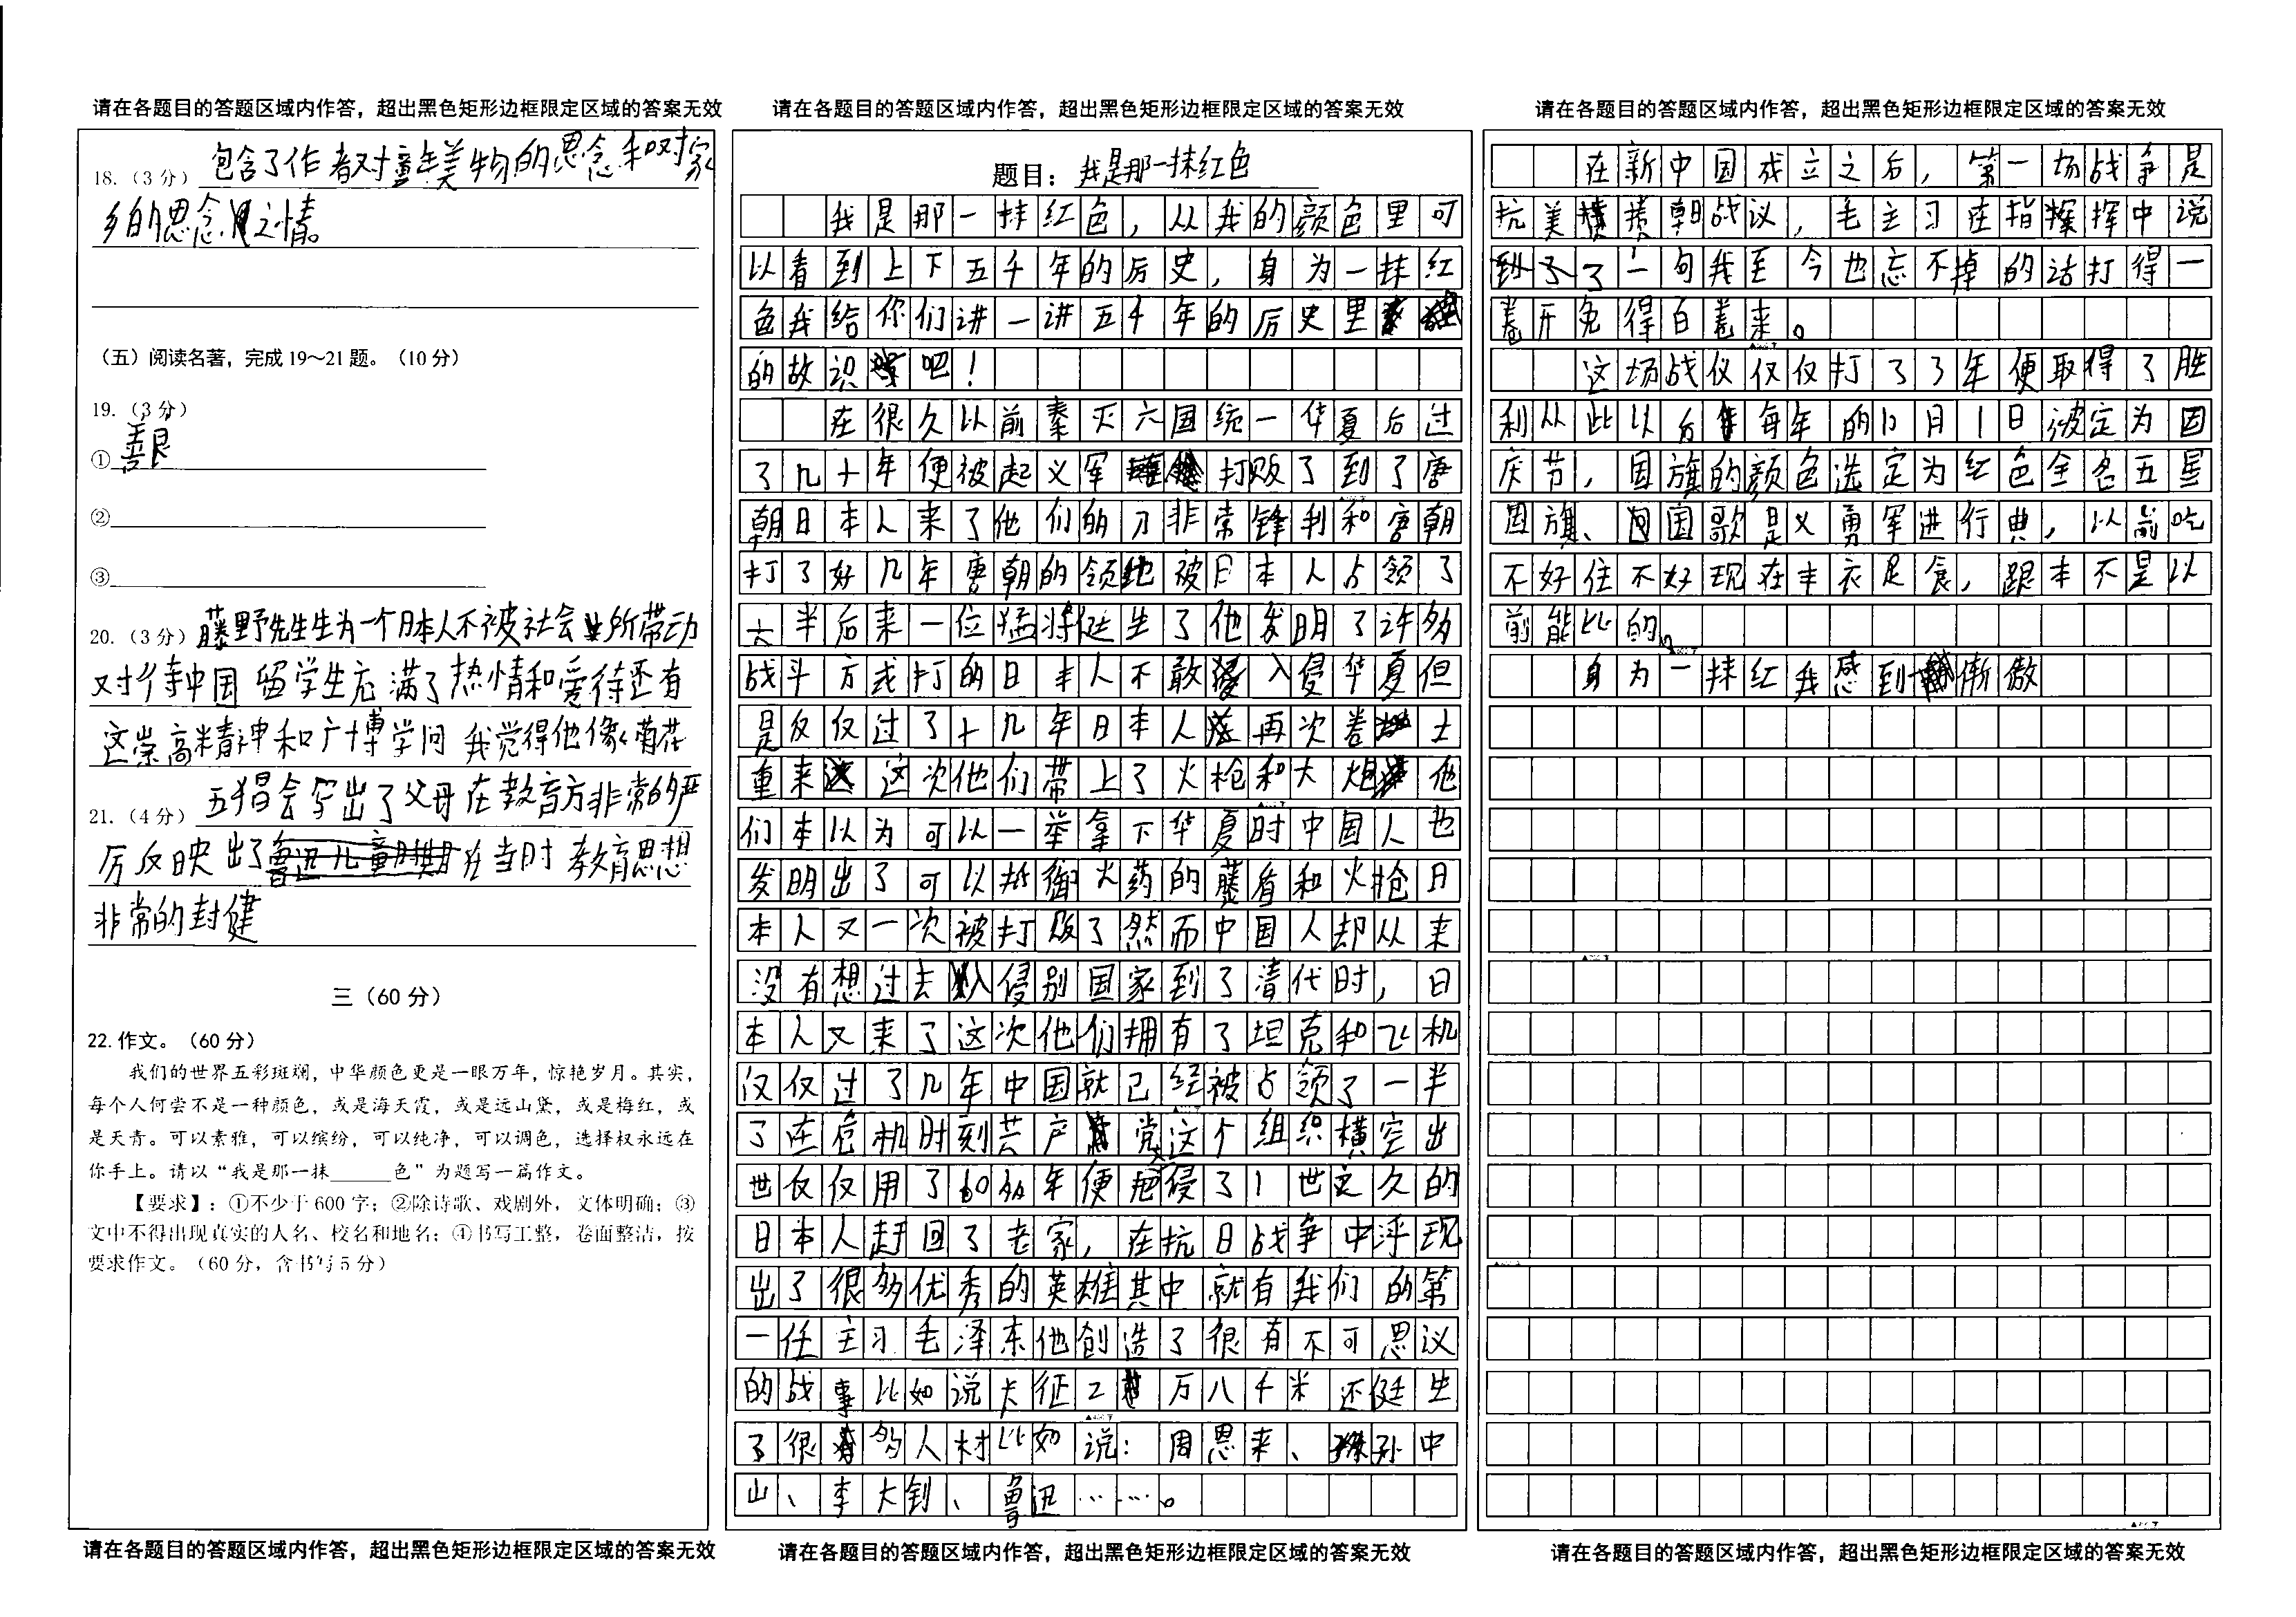 请在各题目的答题区域内作答，超出黑色矩形边框限定区域的答案无效
18.（3 分）包含了作者对童年美物的思念和对家
乡的思念之情。
（五）阅读名著，完成 19～21 题。（10 分）
19.（3 分）
①善良
②
③
20.（3 分）藤野先生生为一个日本人不被社会所带动
对待中国留学生充满了热情和爱待还有
这崇高精神和广博学问 我觉得他像菊花
21.（4 分）五猖会写出了父母在教育方非常的严
厉反映出了在当时教育思想
非常的封健
三（60 分）
22.作文。（60 分）
我们的世界五彩斑斓，中华颜色更是一眼万年，惊艳岁月。其实，
每个人何尝不是一种颜色，或是海天霞，或是远山黛，或是梅红，或
是天青。可以素雅，可以缤纷，可以纯净，可以调色，选择权永远在
你手上。请以“我是那一抹______色”为题写一篇作文。
【要求】：①不少于 600 字；②除诗歌、戏剧外，文体明确；③
文中不得出现真实的人名、校名和地名；④书写工整，卷面整洁，按
要求作文。（60 分，含书写 5 分）
请在各题目的答题区域内作答，超出黑色矩形边框限定区域的答案无效
请在各题目的答题区域内作答，超出黑色矩形边框限定区域的答案无效
题目：我是那一抹红色
我是那一抹红色，从我的颜色里可
以看到上下五千年的历史，身为一抹红
色我给你们讲一讲五千年的历史里
的故识吧！
在很久以前秦灭六国统一华夏后过
了几十年便被起义军打败了到了唐
朝日本人来了他们的刀非常锋利和唐朝
打了好几年唐朝的领地被日本人占领了
大半后来一位猛将诞生了他发明了许多
战斗方式打的日本人不敢入侵华夏但
是仅仅过了十几年日本人再次卷土
重来这次他们带上了火枪和大炮他
们本以为可以一举拿下华夏时中国人也
发明出了可以抵御火药的藤盾和火枪日
本人又一次被打败了然而中国人却从来
没有想过去入侵别国家到了清代时，日
本人又来了这次他们拥有了坦克和飞机
仅仅过了几年中国就已经被占领了一半
了在危机时刻共产党这个组织横空出
世仅仅用了60多年便把侵了1世之久的
日本人赶回了老家，在抗日战争中浮现
出了很多优秀的英雄其中就有我们的第
一任主习毛泽东他创造了很有不可思议
的战事比如说长征2万八千米还诞生
了很多人材比如说：周恩来、孙中
山、李大钊、鲁迅……。
请在各题目的答题区域内作答，超出黑色矩形边框限定区域的答案无效
请在各题目的答题区域内作答，超出黑色矩形边框限定区域的答案无效
在新中国成立之后，第一场战争是
抗美援朝战议，毛主习在指挥中说
了一句我至今也忘不掉的话打得一
卷开免得百卷来。
这场战仪仅仅打了3年便取得了胜
利从此以后每年的10月1日被定为国
庆节，国旗的颜色选定为红色全名五星
国旗、国歌是义勇军进行典，以前吃
不好住不好现在丰衣足食，跟本不是以
前能比的。
身为一抹红我感到傲
请在各题目的答题区域内作答，超出黑色矩形边框限定区域的答案无效